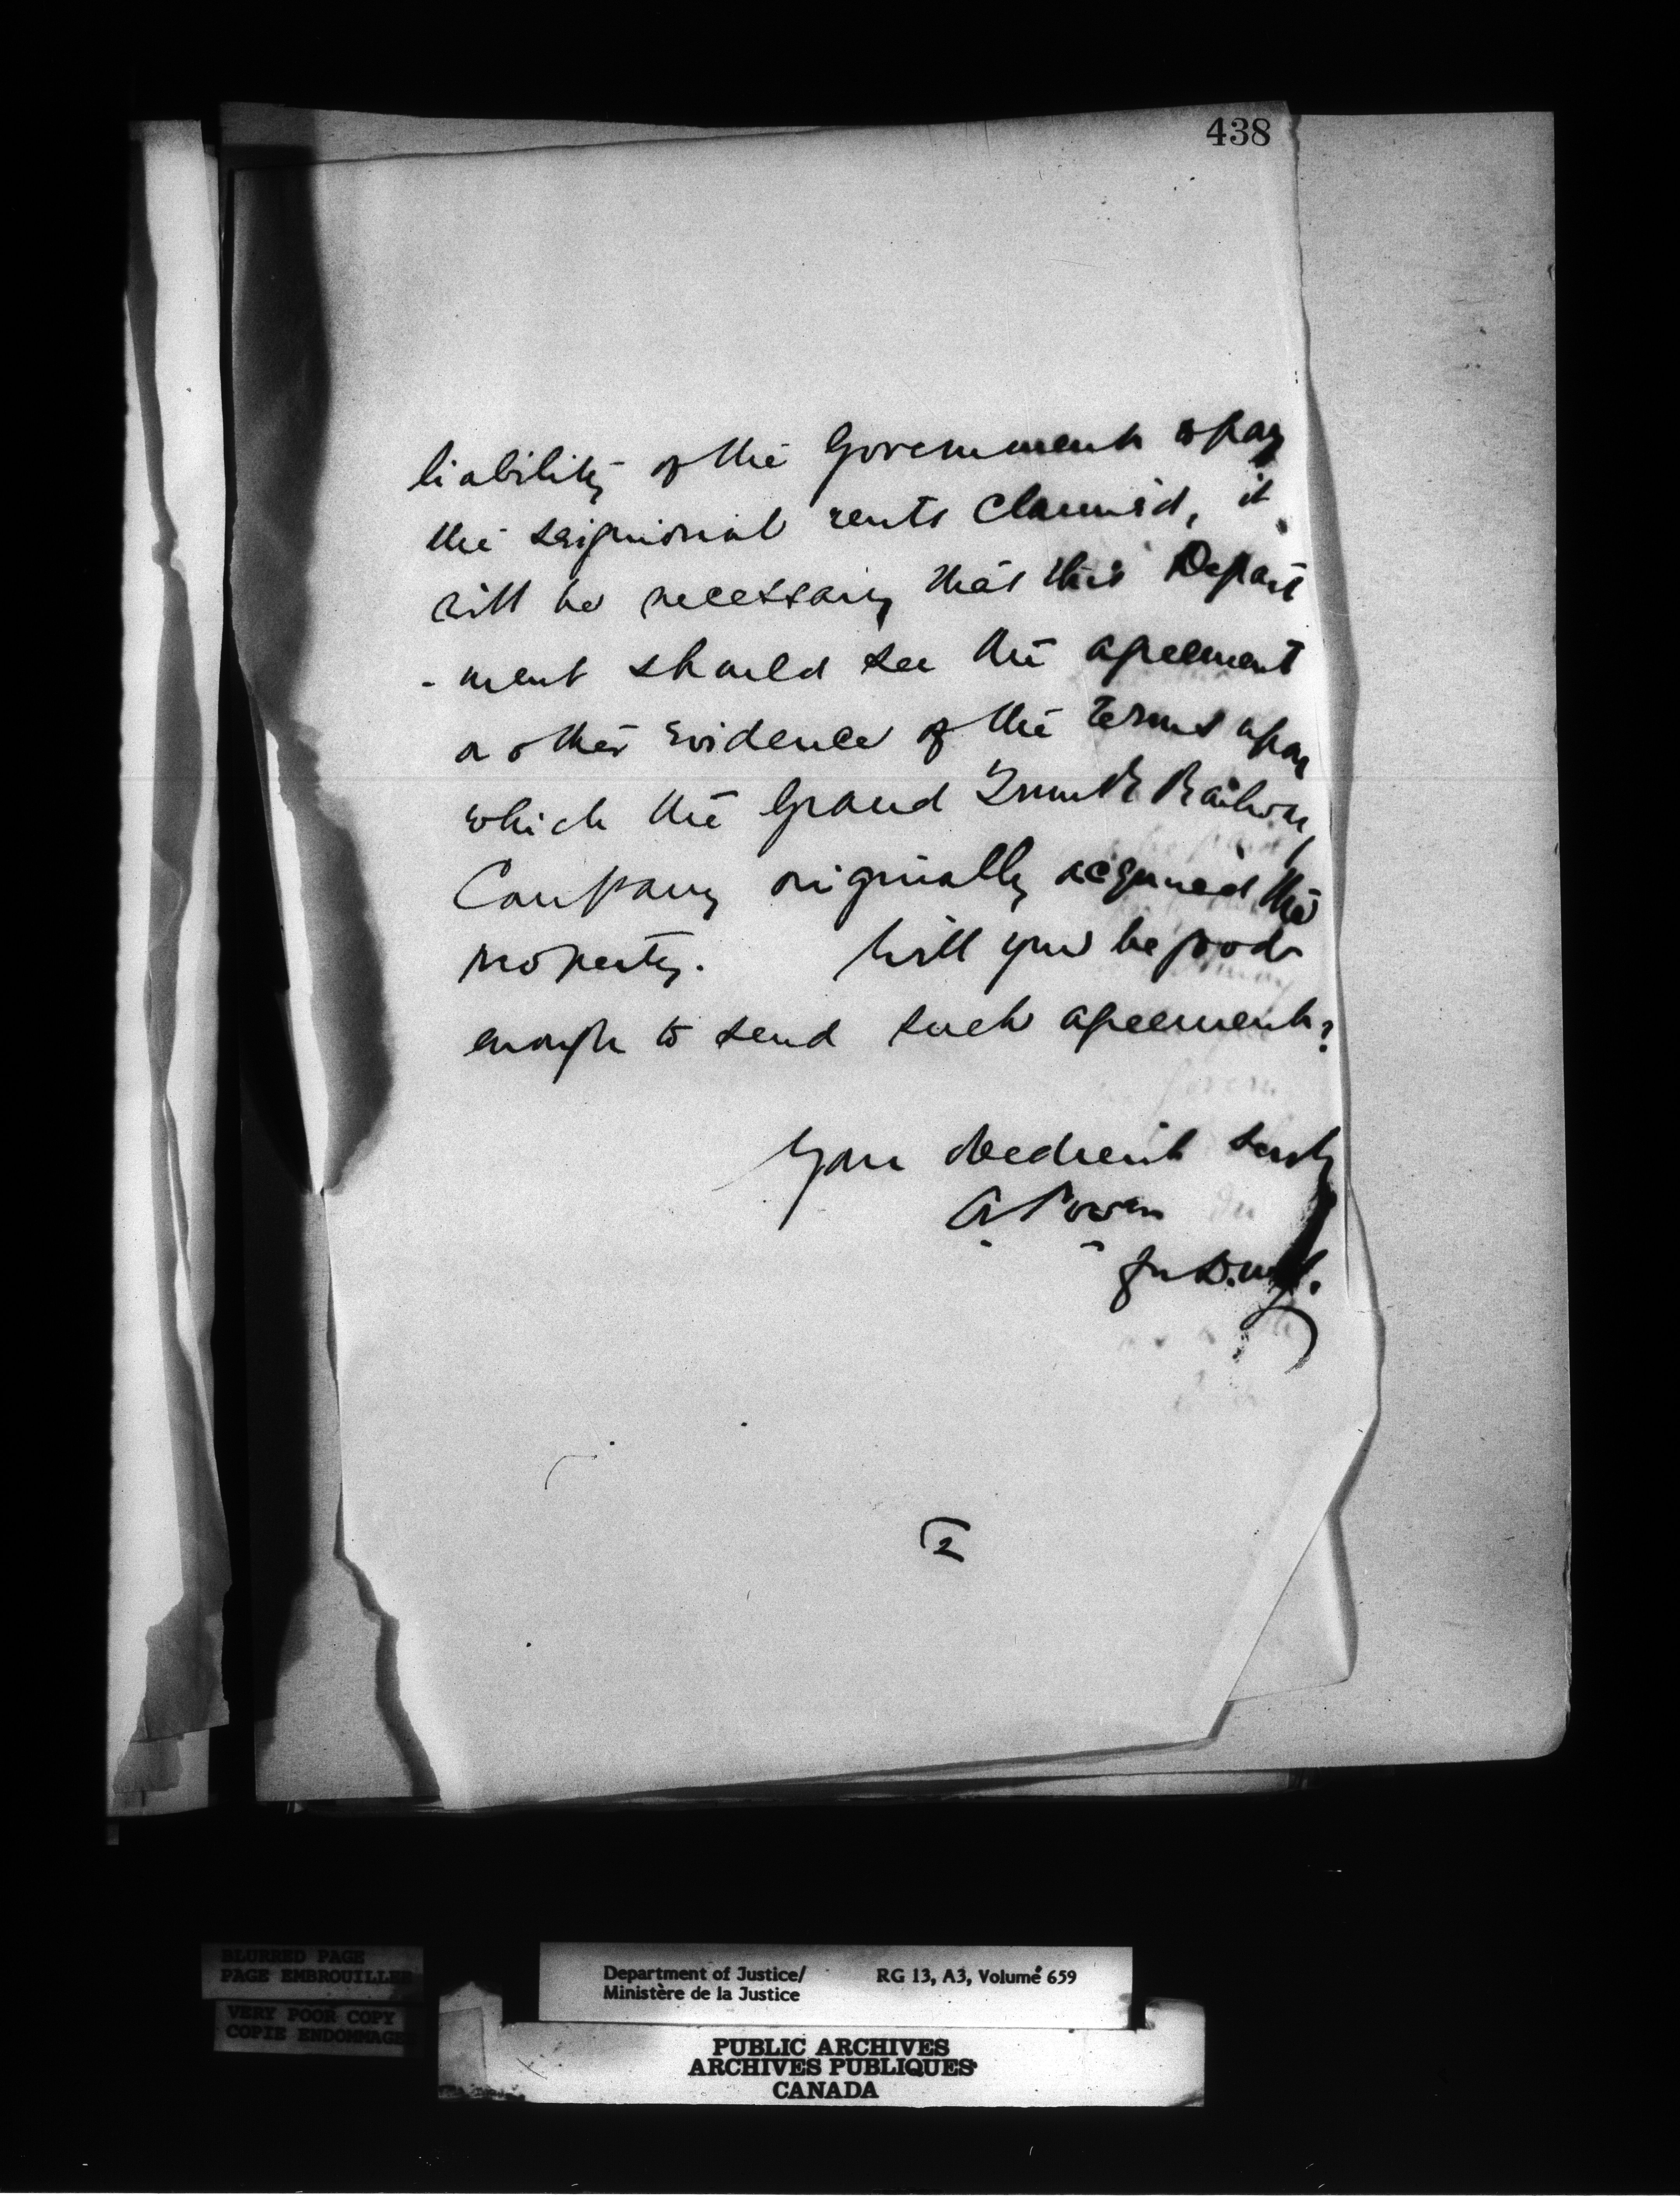 438
liability of the Government to pay
the seigniorial rents claimed, it
will be necessary that this Depart
- ment should see the agreement
or other evidence of the terms upon
which the Grand Trunk Railway
Company originally acquired the
property. Will you be good
enough to send such agreement?
Your obedient servt
A Power
for D.M.J.
2
BLURRED PAGE
PAGE EMBROUILLEE
VERY POOR COPY
COPIE ENDOMMAGE
Department of Justice/ RG 13, A3, Volume 659
Ministère de la Justice
PUBLIC ARCHIVES
ARCHIVES PUBLIQUES
CANADA